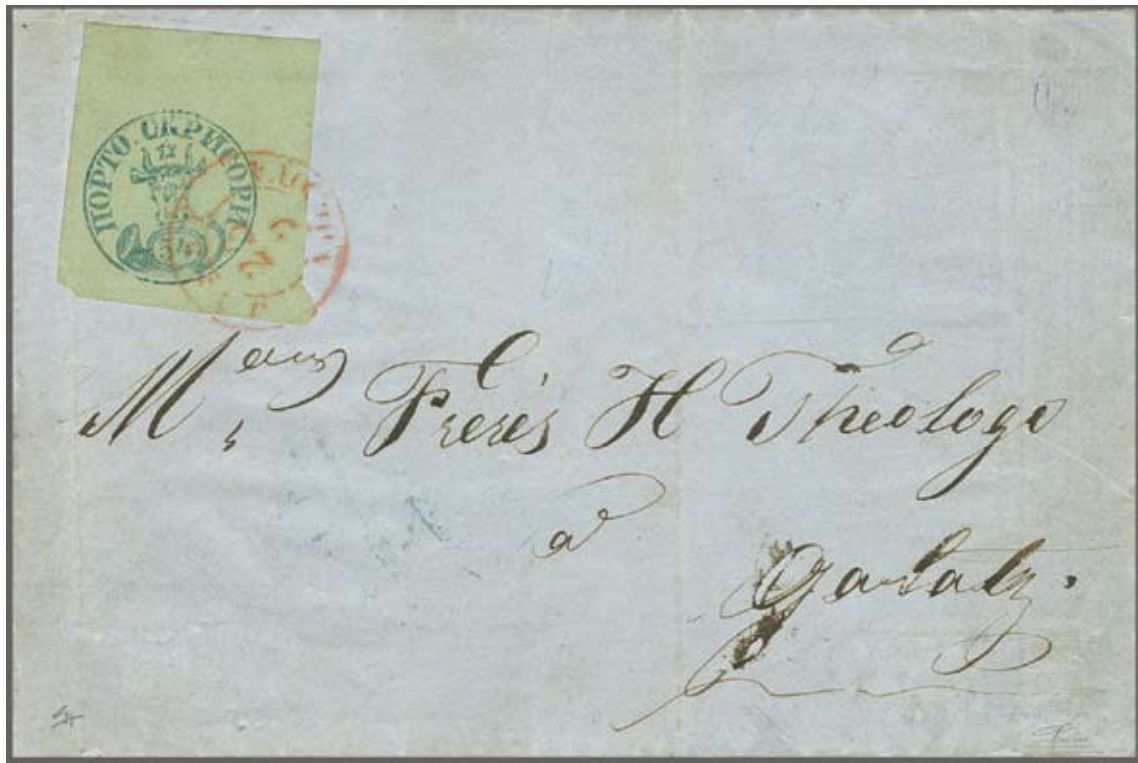 ПОРТО СКРИСОРИ
54
25
Mrs Freres H Theologo
a
Galatz.